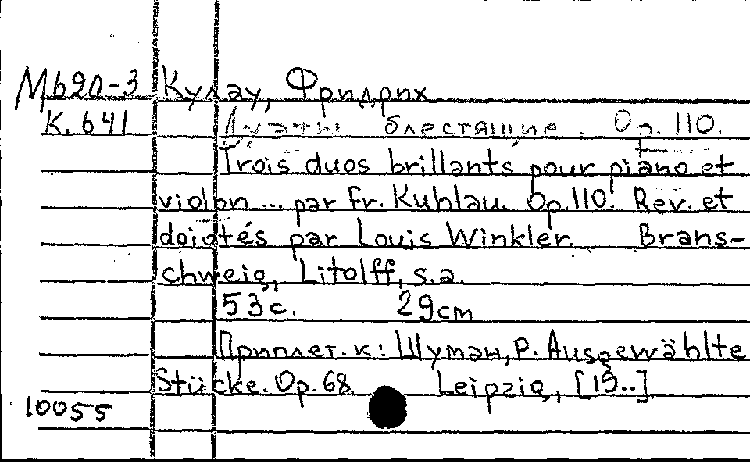 М620-3 Кулау, Фридрих
К.641 Дуэты блестящие. Op.110.
Trois duos brillants pour piano et
violon ... par Fr. Kuhlau. Op.110. Rev. et
doigtés par Louis Winkler. Brans-
chweig, Litolff, s.a.
53с. 29cm
Приплет. к: Шуман, Р. Ausgewählte
Stücke. Op.68. Leipzig, [19..]
10055